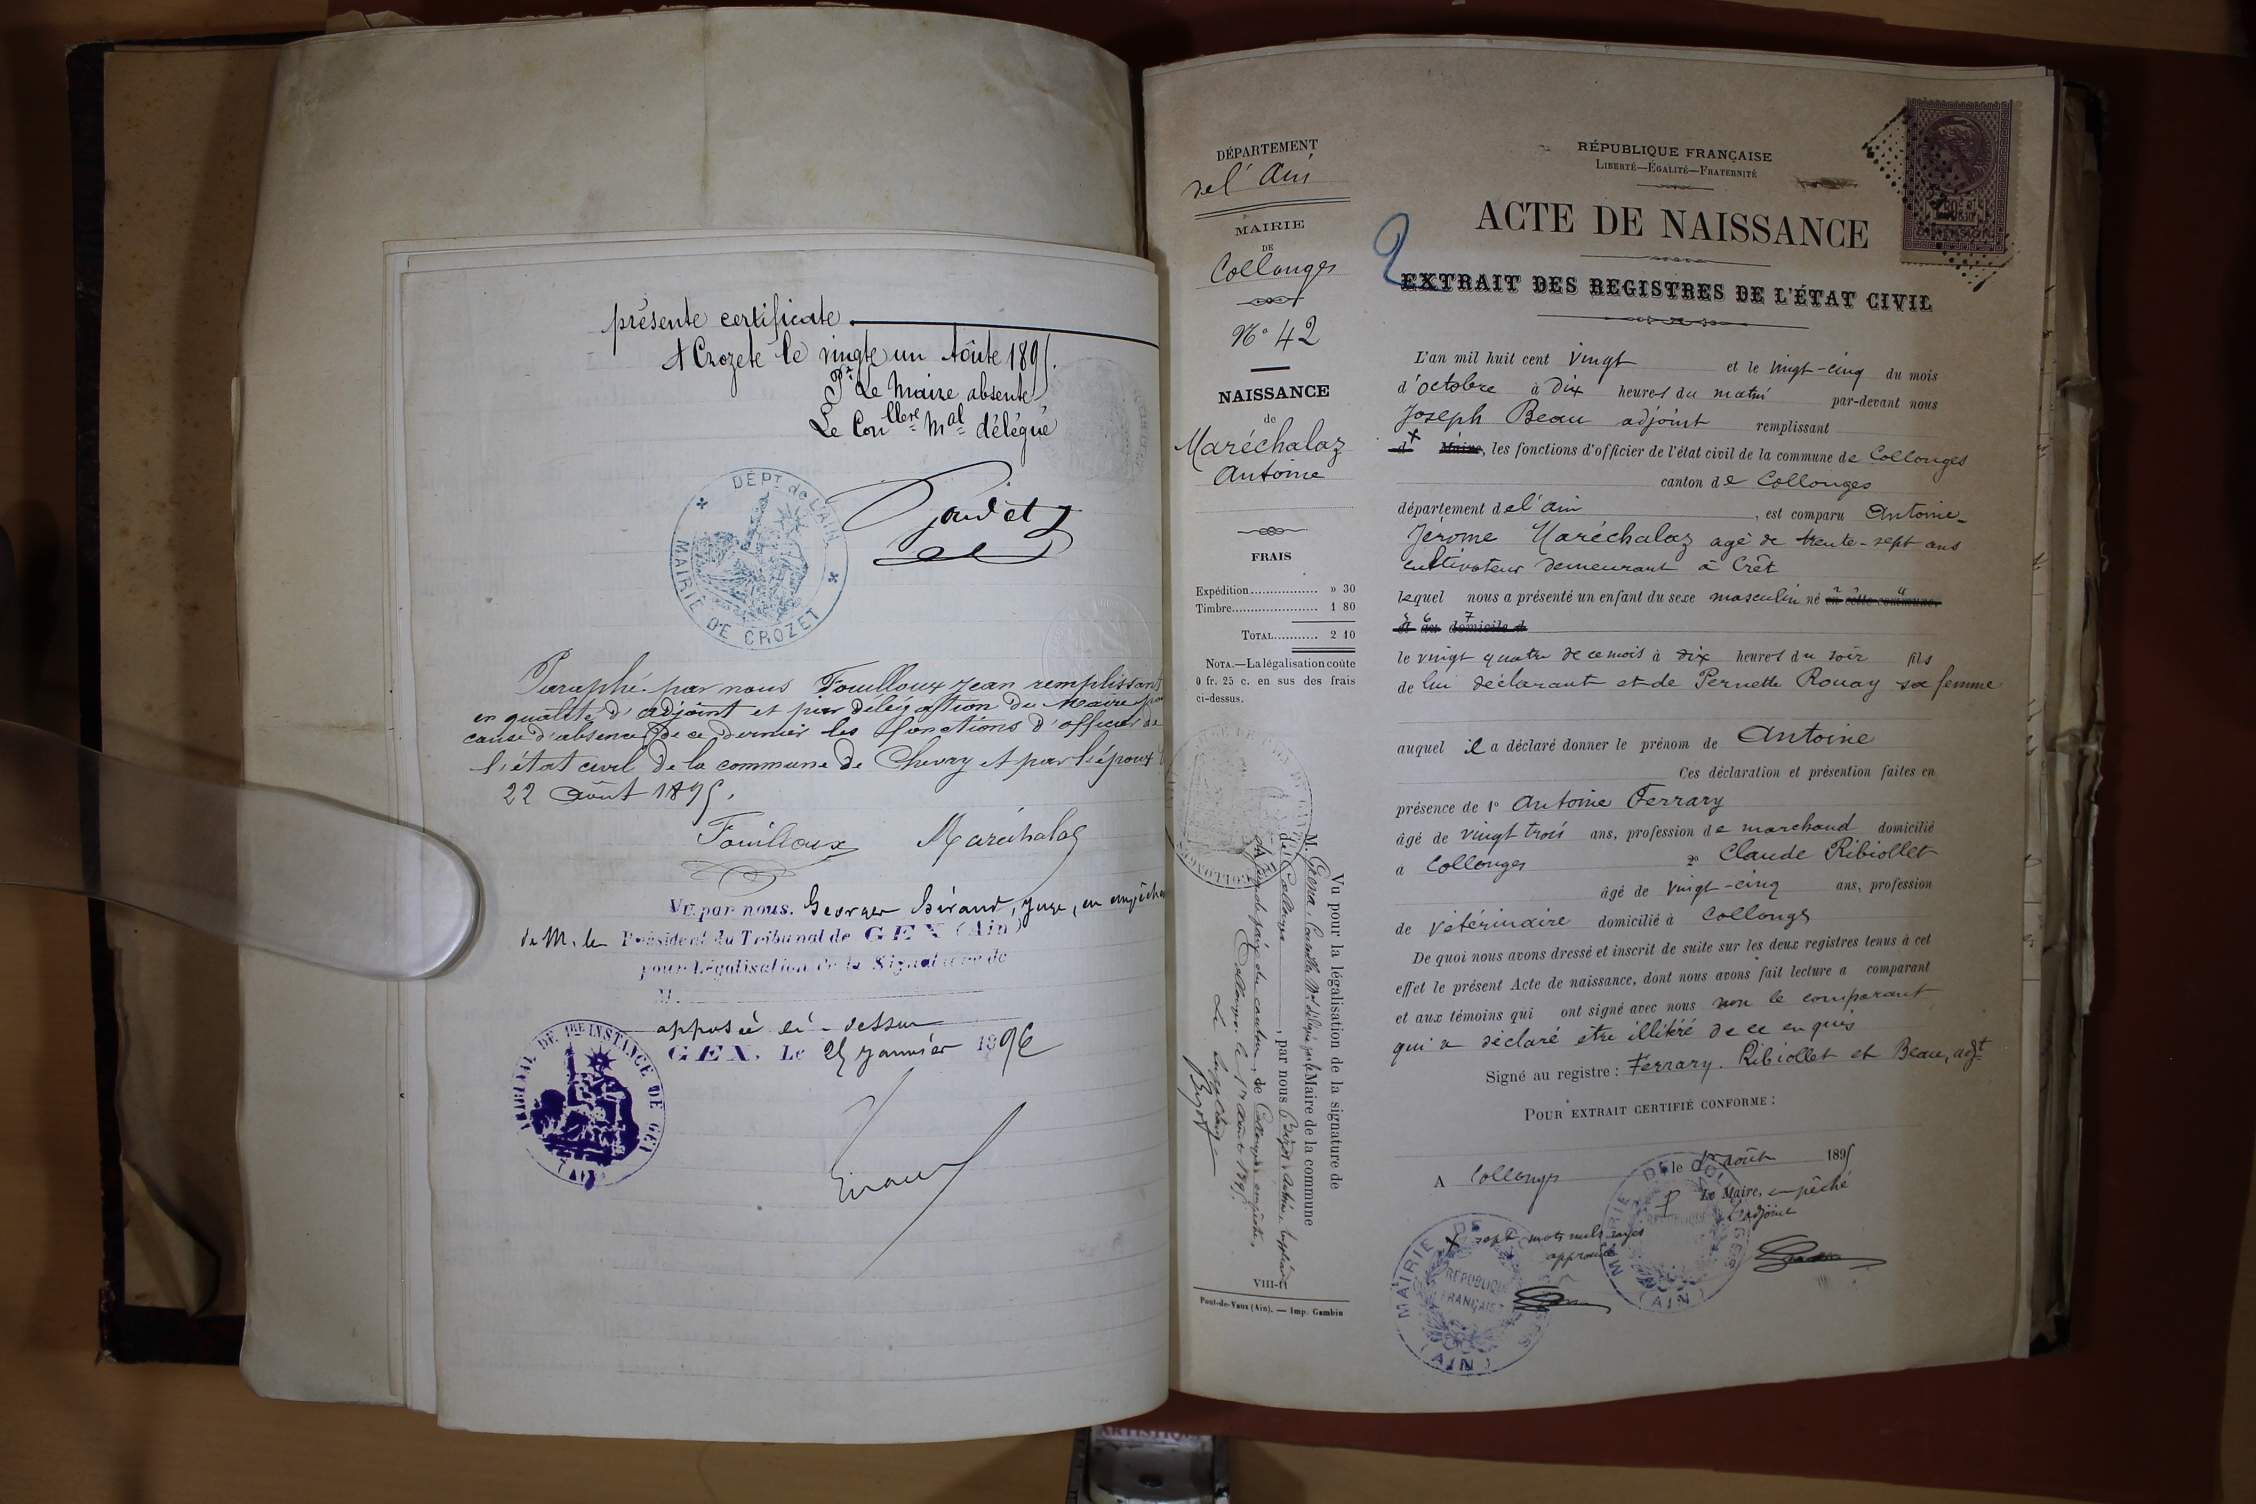 présente certificate
A Crozete le vingte un Aôute 1895.
Pr Le Maire absente
Le Conllere Mal délégué
DÉPT. de L'AIN
MAIRIE DE CROZET
Paraphé par nous Fouilloux Jean remplissant
en qualité d'adjoint et par délégation du Maire pour
cause d'absence de ce dernier les fonctions d'officier de
l'état civil de la commune de Chevry et par l'époux
22 Août 1895.
Fouilloux Maréchalaz
Vu par nous. Georges Giraud, juge, en empêche
de M. le Président du Tribunal de GEX (Ain)
pour Légalisation de la Signature de
M.
apposée ci-dessus
GEX, Le 25 janvier 1896
TRIBUNAL DE 1RE INSTANCE DE GEX
(AIN)
DÉPARTEMENT
de l'Ain
MAIRIE
DE
Collonges
N° 42
NAISSANCE
de
Maréchalaz
Antoine
FRAIS
Expédition.................. » 30
Timbre...................... 1 80
TOTAL........... 2 10
NOTA.—La légalisation coûte
0 fr. 25 c. en sus des frais
ci-dessus.
Vu pour la légalisation de la signature de
M. Conseiller Mal délégué par le Maire de la commune
de Collonges, par nous
du canton de Collonges empêché,
Collonges le août 1895.
Le
VIII-
Pont-de-Vaux (Ain). — Imp. Gambin
RÉPUBLIQUE FRANÇAISE
LIBERTÉ—EGALITÉ—FRATERNITÉ
ACTE DE NAISSANCE
2
EXTRAIT DES REGISTRES DE L'ÉTAT CIVIL
L'an mil huit cent vingt et le vingt-cinq du mois
d'octobre à dix heures du matin par-devant nous
Joseph Beau adjoint remplissant
d Maire, les fonctions d'officier de l'état civil de la commune de Collonges
canton de Collonges
département de l'ain, est comparu Antoine-
Jérome Maréchalaz agé de trente-sept ans
cultivateur demeurant à Crêt
lequel nous a présenté un enfant du sexe masculin né en cette commune.
et au domicile d
le vingt quatre de ce mois à dix heures du soir fils
de lui déclarant et de Pernette Rouay sa femme
auquel il a déclaré donner le prénom de Antoine
Ces déclaration et présention faites en
présence de 1° Antoine Ferrary
âgé de vingt trois ans, profession de marchand domicilié
à Collonges 2° Claude Ribiollet
âgé de vingt-cinq ans, profession
de vétérinaire domicilié à Collonges
De quoi nous avons dressé et inscrit de suite sur les deux registres tenus à cet
effet le présent Acte de naissance, dont nous avons fait lecture a comparant
et aux témoins qui ont signé avec nous non le comparant
qui a déclaré être illitéré de ce enquis
Signé au registre : Ferrary. Ribiollet et Beau, adjt
POUR EXTRAIT CERTIFIÉ CONFORME :
A Collonges le août 1895
Le Maire, empêché
l'adjoint
X sept mots nuls rayés
approuvé
MAIRIE DE COLLONGES
RÉPUBLIQUE FRANÇAISE
(AIN)
MAIRIE DE COLLONGES
(AIN)